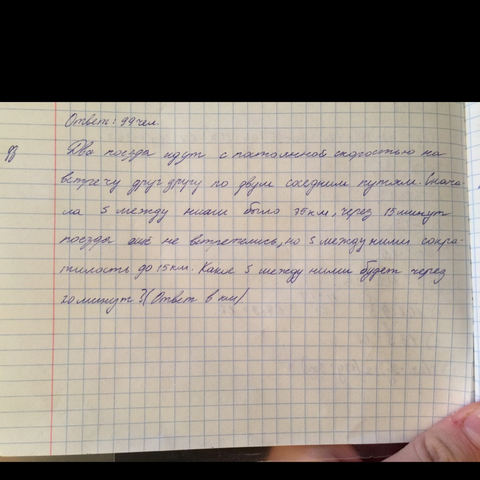 Ответ: 99 чел.
Два поезда идут с постоянной скоростью на
встречу друг другу по двум соседним путям. Снача-
ла S между ними было 75 км, через 15 минут
поезда ещё не встретились, но S между ними сокра-
тилость до 15 км. Какое S между ними будет через
20 минут? (Ответ в км)